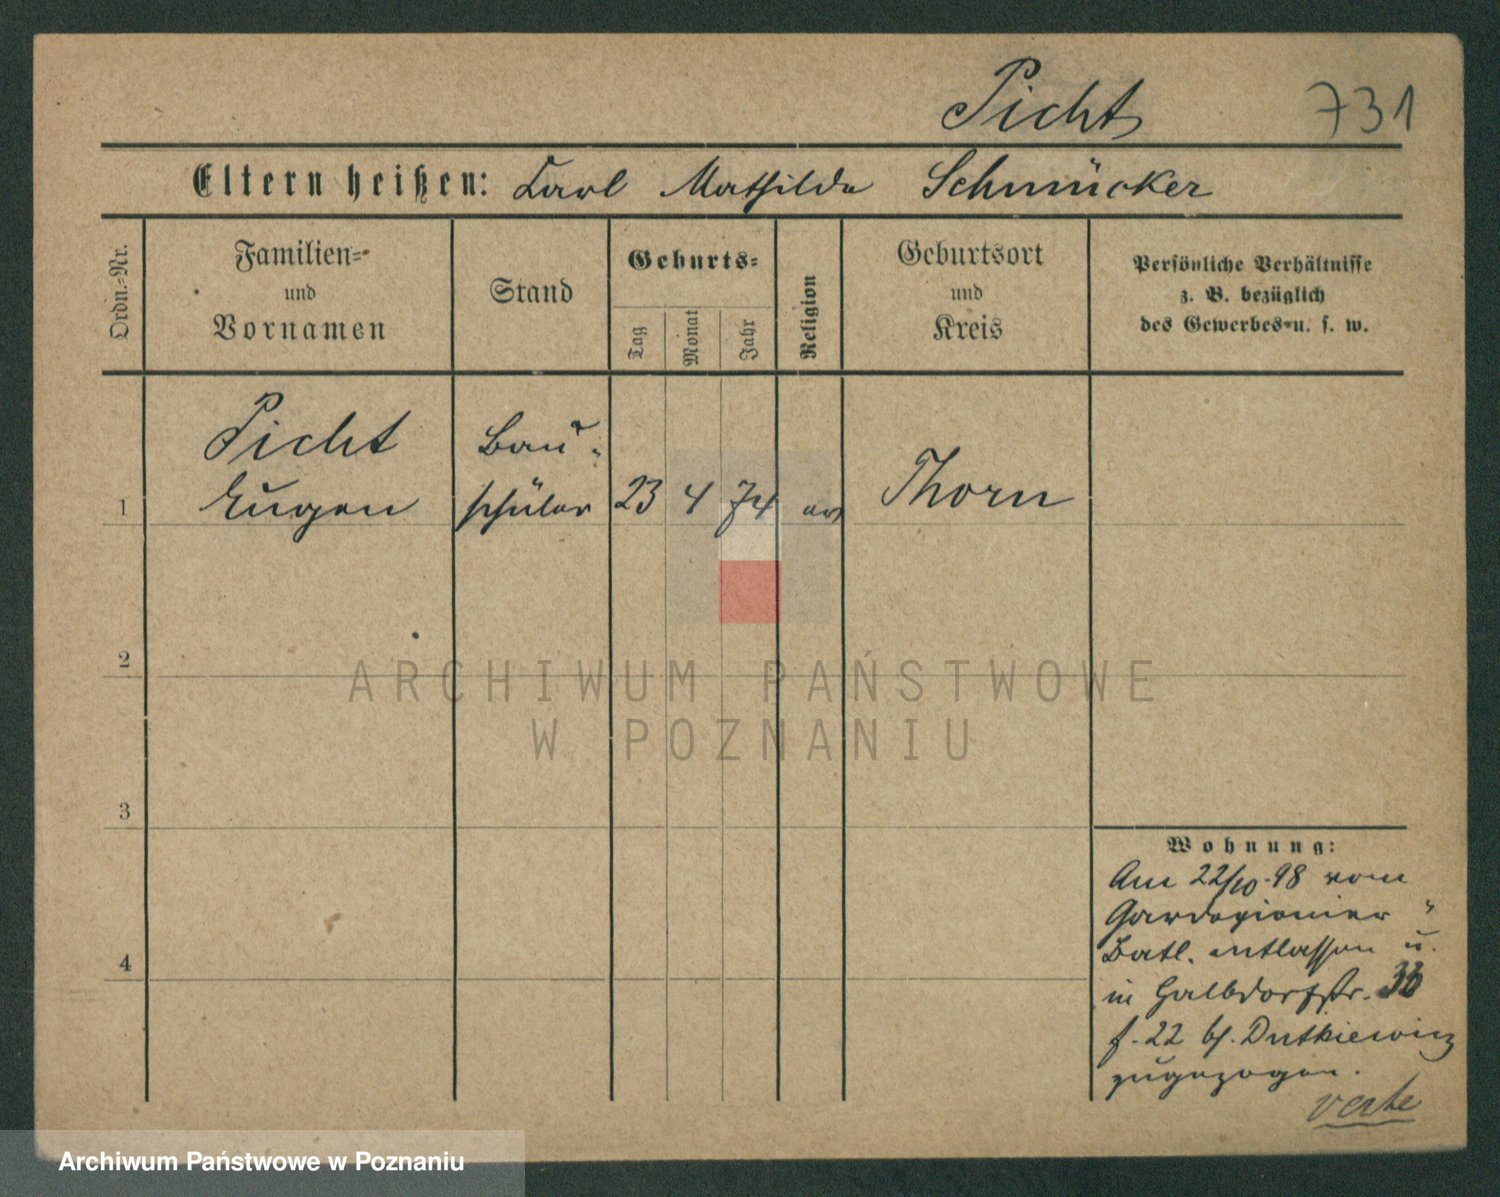 Picht 731
Eltern heißen: Carl Mathilde Schmücker
Ordn.-Nr.
Familien-
und
Vornamen
Stand
Geburts-
Tag
Monat
Jahr
Religion
Geburtsort
und
Kreis
Persönliche Verhältnisse
z. B. bezüglich
des Gewerbes u. s. w.
Picht Bau-
1 Eugen schüler 23 4 74 ev Thorn
2
3
4
ARCHIWUM PAŃSTWOWE
W POZNANIU
Wohnung:
Am 22/10.98 vom
Gardepionier-
Batl. entlassen u.
in Halbdorfstr.
f. 22 b/. Dutkiewicz
zugezogen.
verte
Archiwum Państwowe w Poznaniu